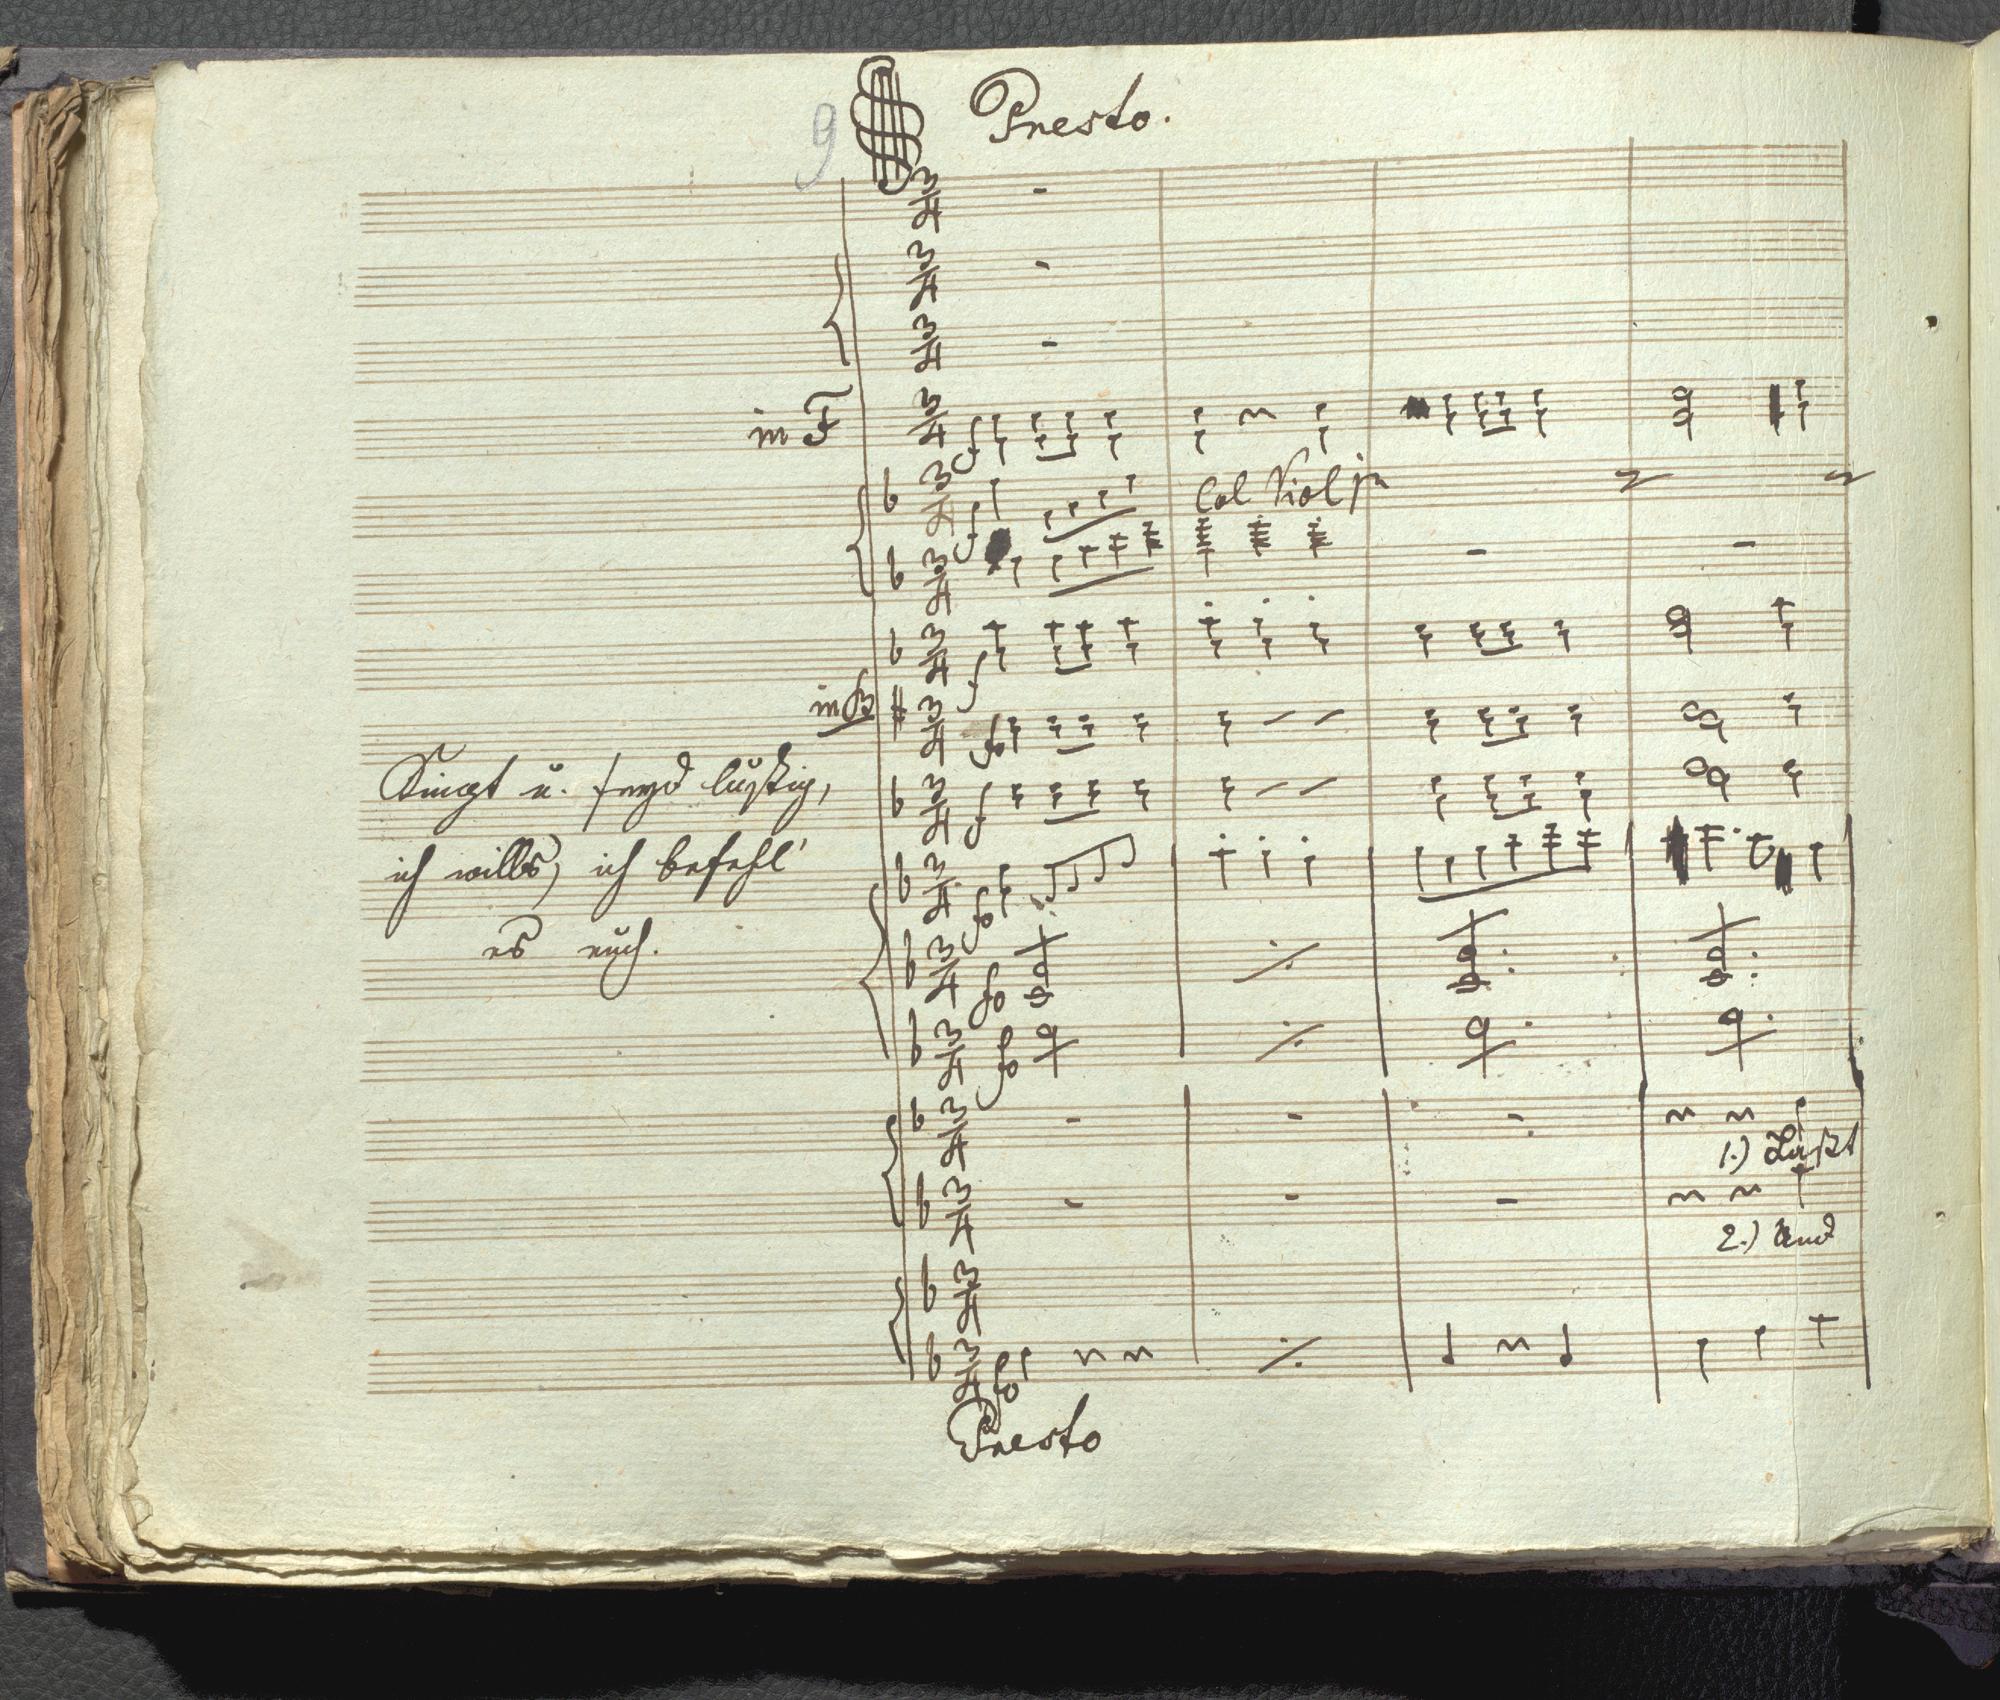 9 Presto.
in F
Col Viol
in B
Singt u. seyd lustig,
ich wills, ich befehl'
es euch.
1.) Laßt
2.) Und
Presto